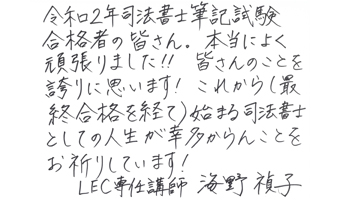 令和2年司法書士筆記試験
合格者の皆さん。本当によく
頑張りました!! 皆さんのことを
誇りに思います! これから(最
終合格を経て)始まる司法書士
としての人生が幸多からんことを
お祈りしています!
LEC専任講師 海野禎子